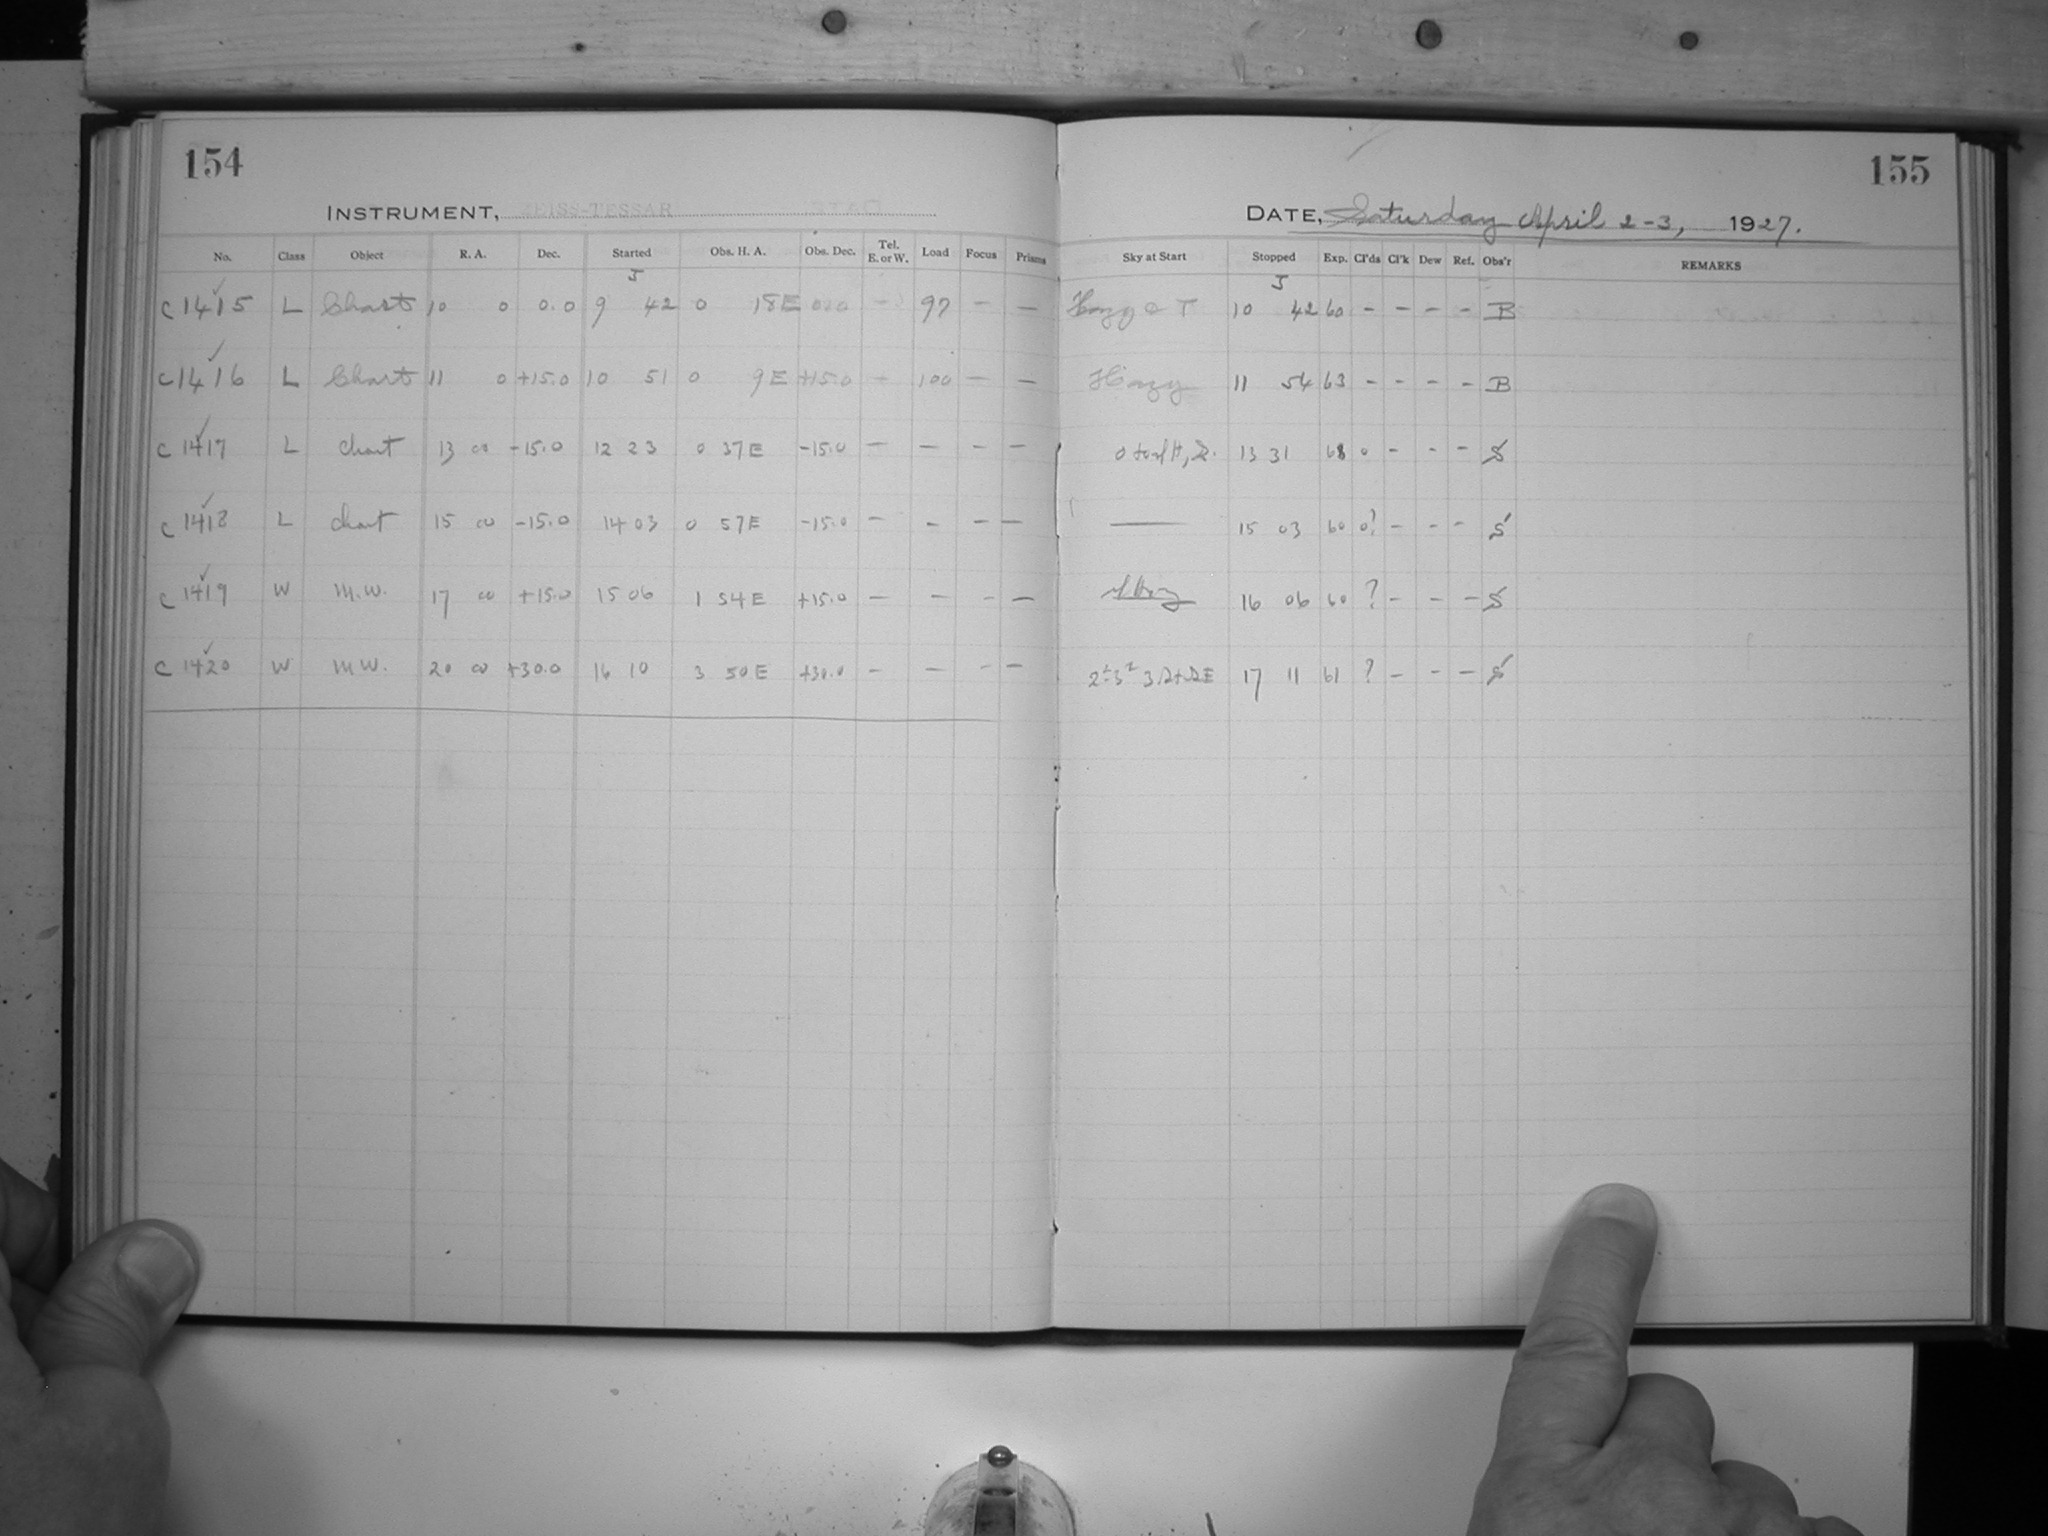 154
155
INSTRUMENT, ZEISS-TESSAR
DATE, Saturday April 2-3, 1927.
No. Class Object R. A. Dec. Started Obs. H. A. Obs. Dec. Tel. E. or W. Load Focus Prisms Sky at Start Stopped Exp. Cl'ds Cl'k Dew Ref. Obs'r REMARKS
J J
C 1415 ✓ L Chart 10 0 0.0 9 42 0 18E 0.0 – 97 – – Hazy 10 42 60 – – – – B
C 1416 ✓ L Chart 11 0 +15.0 10 51 0 9E +15.0 – 100 – – Hazy 11 54 63 – – – – B
C 1417 ✓ L Chart 13 00 -15.0 12 23 0 37E -15.0 – – – – 13 31 68 0 – – – S
C 1418 ✓ L Chart 15 00 -15.0 14 03 0 57E -15.0 – – – – —— 15 03 60 0? – – – S
C 1419 ✓ W M.W. 17 00 +15.0 15 06 1 54E +15.0 – – – – 16 06 60 ? – – – S
C 1420 ✓ W M.W. 20 00 +30.0 16 10 3 50E +30.0 – – – – 17 11 61 ? – – – S